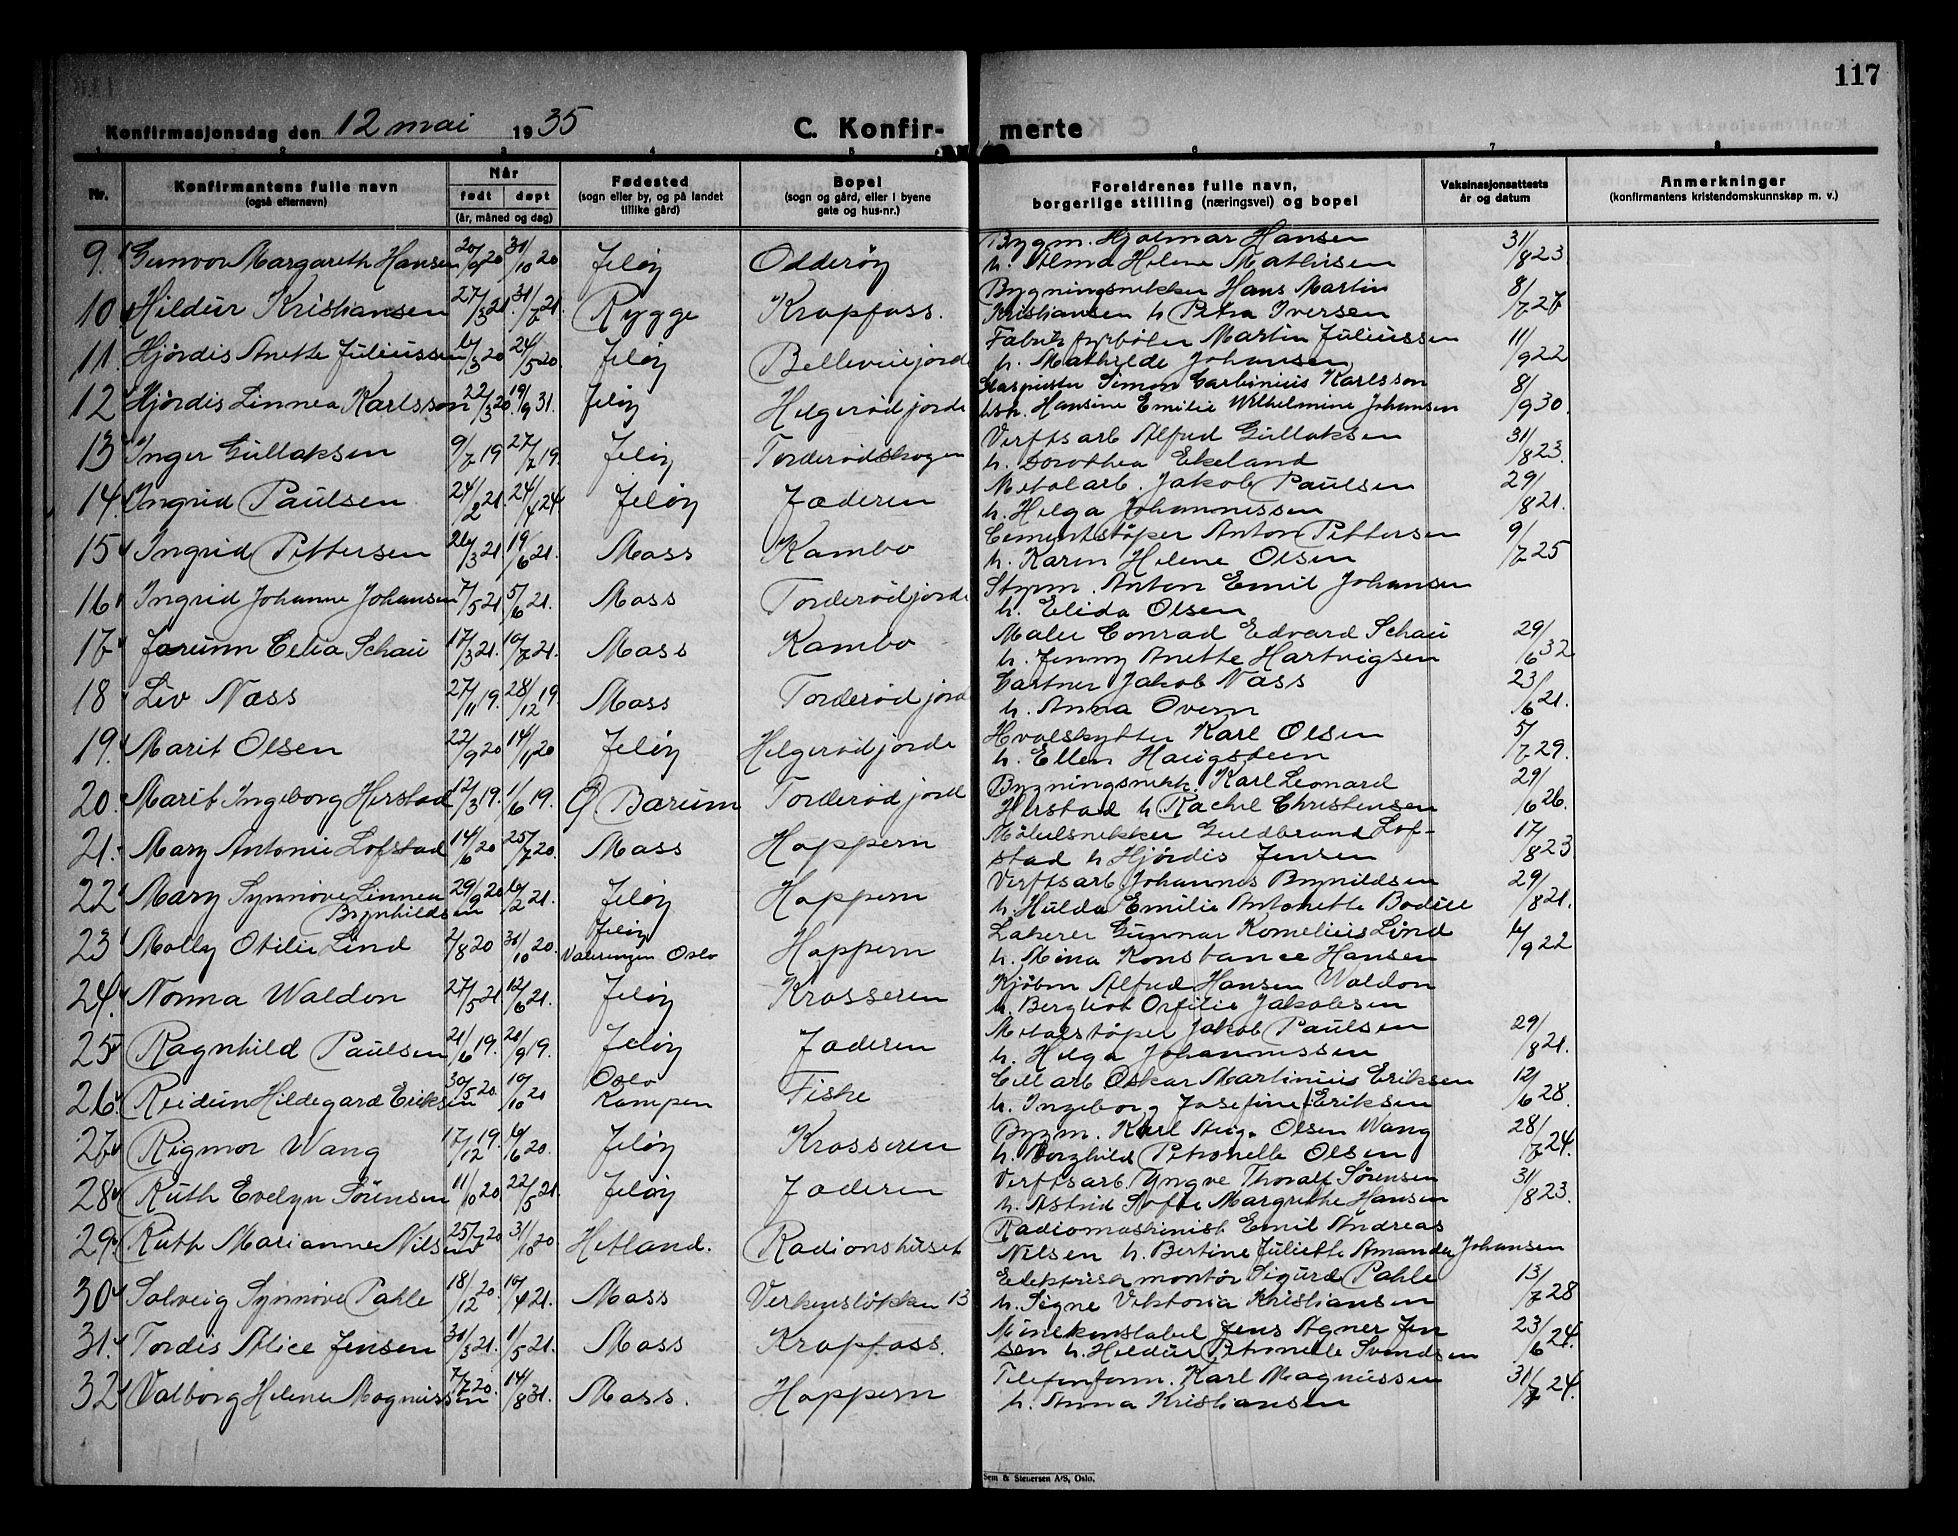 117
Konfirmasjonsdag den 12 mai 1935 C. Konfir- merte
1 2 3 4 5 6 7 8
Nr. Konfirmantens fulle navn (også efternavn) Når født døpt (år, måned og dag) Fødested (sogn eller by, og på landet tillike gård) Bopel (sogn og gård, eller i byene gate og hus-nr.) Foreldrenes fulle navn, borgerlige stilling (næringsvei) og bopel Vaksinasjonsattests år og datum Anmerkninger (konfirmantens kristendomskunnskap m. v.)
9. Gunvor Margareth Hansen 20/9 20 31/10 20 Jeløy Odderøy Bygm. Hjalmar Hansen 31/8 23
h. Alma Helene Mathisen
10 Hildur Kristiansen 27/3 21. 31/7 21. Rygge Krapfoss. Bygningsnekker Hans Martin 8/7 27
Kristiansen h Petra Iversen
11. Hjördis Anette Juliussen 6/3 20 24/5 20. Jeløy Bellevuejorde Fabrikfyrbøter Martin Juliussen 11/9 22
h. Mathilde Johansen
12 Hjördis Linnea Karlsson 22/3 20. 19/9 31. Jeløy Helgerødjorde Simon Karlsson 8/9 30.
h. Hansine Emilie Wilhelmine Johansen
13 Inger Gullaksen 9/7 19 27/7 19. Jeløy Torderødskogen Verftsarb Alfred Gullaksen 31/8 23.
h. Dorothea Ekeland
14. Ingrid Paulsen 24/2 21. 24/4 24 Jeløy Jæderen Metalarb. Jakob Paulsen 29/8 21.
h. Helga Johannissen
15 Ingrid Pettersen 26/3 21 19/6 21. Moss Kambo Cementstøper Anton Pettersen 9/7 25
h. Karen Helene Olsen
16 Ingrid Johanne Johansen 7/5 21 5/6 21. Moss Torderødjorde Styrm. Anton Emil Johansen
h. Elida Olsen
17 Jorunn Celia Schau 17/3 21. 10/7 21. Moss Kambo Maler Conrad Edvard Schau 29/6 32
h. Jenny Anette Hartvigsen
18 Liv Næss 27/11 19. 28/12 19. Moss Torderødjord Gartner Jakob Næss 23/6 21.
h. Anna Overn
19. Marit Olsen 22/9 20 14/11 20 Jeløy Helgerødjorde Hvalskytter Karl Olsen 5/7 29.
h. Ellen Haugsteen
20. Marit Ingeborg Herstad 12/3 19. 1/6 19. Ø Bærum Torderødjord Bygningsnekk. Karl Leonard 29/6 26.
Herstad h Rachel Christensen
21. Mary Antonie Lofstad 14/6 20 25/7 20. Moss Hoppern Møbelsnekker Guldbrand Lof- 17/8 23
stad h Hjördis Jensen
22 Mary Synnöve Linnea Brynhildsen 29/9 20 6/2 21. Jeløy Hoppern Verftsarb Johannes Brynildsen 29/8 21.
h. Hulda Emilie Antonette Bodill
23 Molly Otilie Lind 2/8 20 31/10 20. Jeløy Vålerengen Oslo Hoppern Lakerer Gunnar Kornelius Lind 4/9 22
h. Mina Konstance Hansen
24. Norma Waldon 27/5 21 12/6 21. Jeløy Krosseren Kjöbm Alfred Hansen Waldon
h. Bergliot Otilie Jakobsen
25 Ragnhild Paulsen 21/6 19. 20/9 19. Jeløy Jæderen Metalstøper Jakob Paulsen 29/8 21.
h. Helga Johannissen
26. Reidun Hildegard Eriksen 30/5 20. 10/10 20 Oslo Kampen Fiske Cell arb Oskar Martinius Eriksen 12/6 28.
h. Ingeborg Josefine Eriksen
27 Rigmor Wang 17/12 19. 6/6 20. Jeløy Krosseren Bygm. Karl Aug. Olsen Wang 28/7 24.
h. Borghild Petronelle Olsen
28 Ruth Evelyn Sörensen 11/10 20 22/5 21. Jeløy Jæderen Verftsarb. Yngve Thoralf Sörensen 31/8 23.
h. Astrid Sofie Margrethe Hansen
29 Ruth Marianne Nilsen 25/7 20 31/10 20. Hetland. Radionshuset Radiomaskinist Emil Andreas
Nilsen h. Bertine Juliette Amanda Johansen
30 Solveig Synnöve Pahle 18/12 20 10/4 21. Moss Verkensløkken 13 Elektrisk montör Sigurd Pahle 13/7 28
h. Signe Viktoria Kristiansen
31. Tordis Alice Jensen 31/3 21. 1/5 21. Moss Krapfoss. Minekonstabel Jens Agner Jen 23/6 24.
sen h. Hildur Petronelle Svendsen
32 Valborg Helene Magnussen 7/7 20. 14/8 31. Moss. Hoppern Telefonform. Karl Magnussen 31/7 24.
h. Anna Kristiansen
Sem & Stenersen A/S, Oslo.